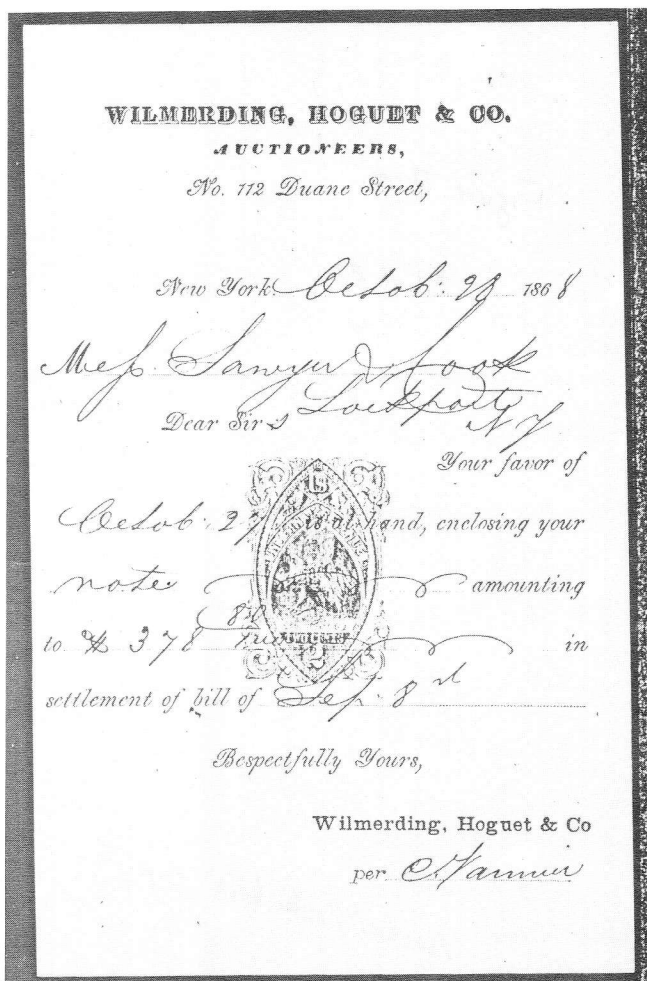 WILMERDING, HOGUET & CO.
AUCTIONEERS,
No. 112 Duane Street,
New York Octob: 28 1868
Mess Sawyer & Cook
Lockport
Dear Sirs N Y
Your favor of
Octob: 27 is at hand, enclosing your
note amounting
to $ 378 80 in
settlement of bill of Sep. 8
Respectfully Yours,
Wilmerding, Hoguet & Co
per